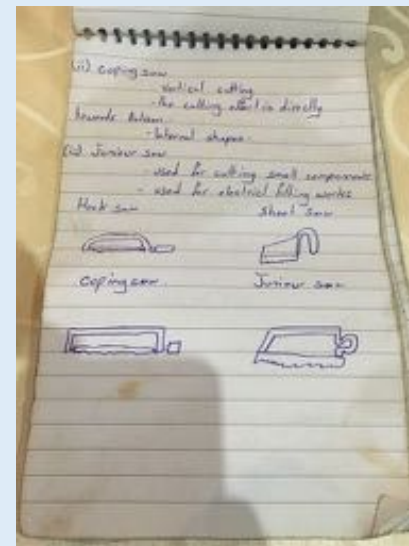 (ii) Coping saw
- vertical cutting
- the cutting effort is directly
towards bottom
- Internal shapes.
(iii) Juniour saw
- used for cutting small components
- used for electrical fitting works
Hack saw Sheet saw
Coping saw Juniour saw